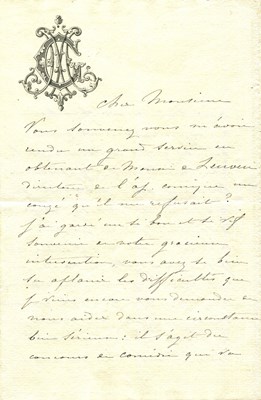 Cher Monsieur
Vous souvenez vous m'avoir
rendu un grand service en
obtenant de Monsieur de Leuven
directeur de l'op. comique un
congé qu'il me refusait?
j'ai gardé un si bon et si
souvenir de votre gracieuse
intervention, vous avez si bien
su aplanir les difficultés que
je viens encore vous demander de
nous aider dans une circonstance
bien sérieuse: il s'agit du
concours de comédie qui va